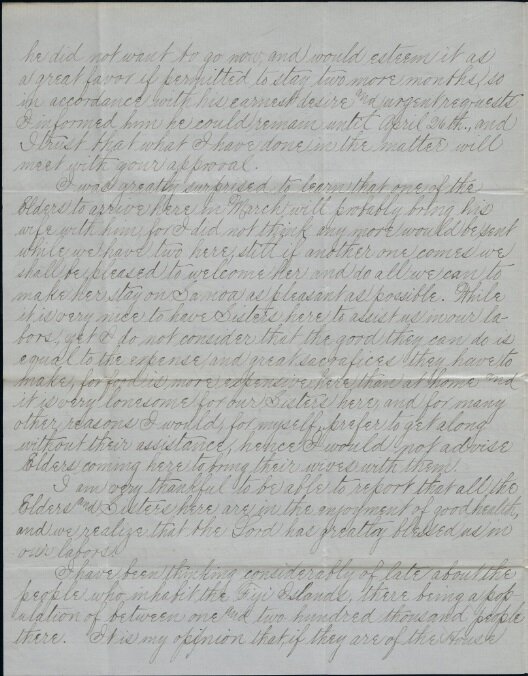 he did not want to go now, and would esteem it as
a great favor if permitted to stay two more months, so
in accordance with his earnest desire and urgent requests
I informed him he could remain until April 26th., and
I trust that what I have done in the matter will
meet with your approval.
I was greatly surprised to learn that one of the
Elders to arrive here in March, will probably bring his
wife with him, for I did not think any more would be sent
while we have two here, still if another one comes we
shall be pleased to welcome her and do all we can to
make her stay on Samoa as pleasant as possible. While
it is very nice to have Sisters here to assist us in our la-
bors, yet I do not consider that the good they can do is
equal to the expense and great sacrafices they have to
make, for food is more expensive here than at home and
it is very lonesome for our Sisters here, and for many
other reasons I would, for myself, prefer to get along
without their assistance, hence I would not advise
Elders coming here to bring their wives with them.
I am very thankful to be able to report that all the
Elders and Sisters here are in the enjoyment of good health,
and we realize that the Lord has greatly blessed us in
our labors.
I have been thinking considerably of late about the
people who inhabit the Fiji Islands, there being a pop-
ulation of between one and two hundred thousand people
there. It is my opinion that if they are of the House